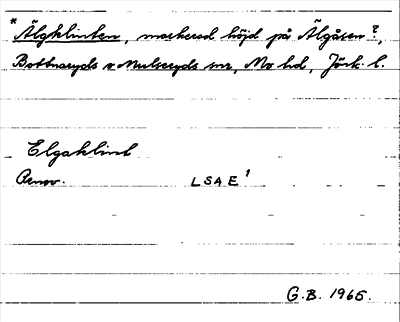 * Älgklinten, markerad höjd på Älgåsen?,
Bottnaryds o Mulseryds snr, Mo hd, Jönk. l.
Elgaklint
Renov. LSA E¹
G.B. 1965.